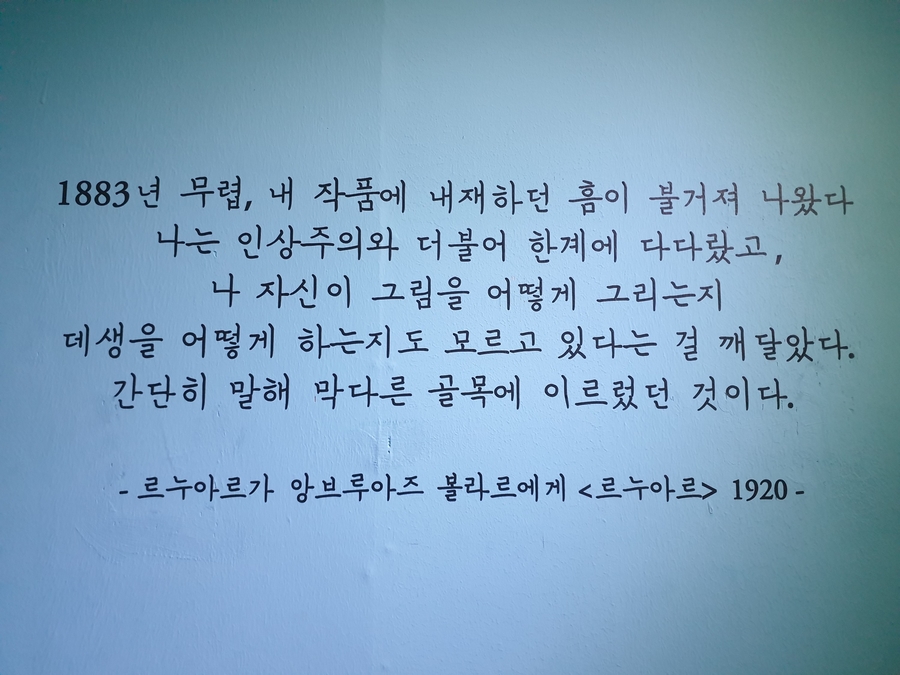 1883년 무렵, 내 작품에 내재하던 흠이 불거져 나왔다
나는 인상주의와 더불어 한계에 다다랐고,
나 자신이 그림을 어떻게 그리는지
데생을 어떻게 하는지도 모르고 있다는 걸 깨달았다.
간단히 말해 막다른 골목에 이르렀던 것이다.
- 르누아르가 앙브루아즈 볼라르에게 <르누아르> 1920 -